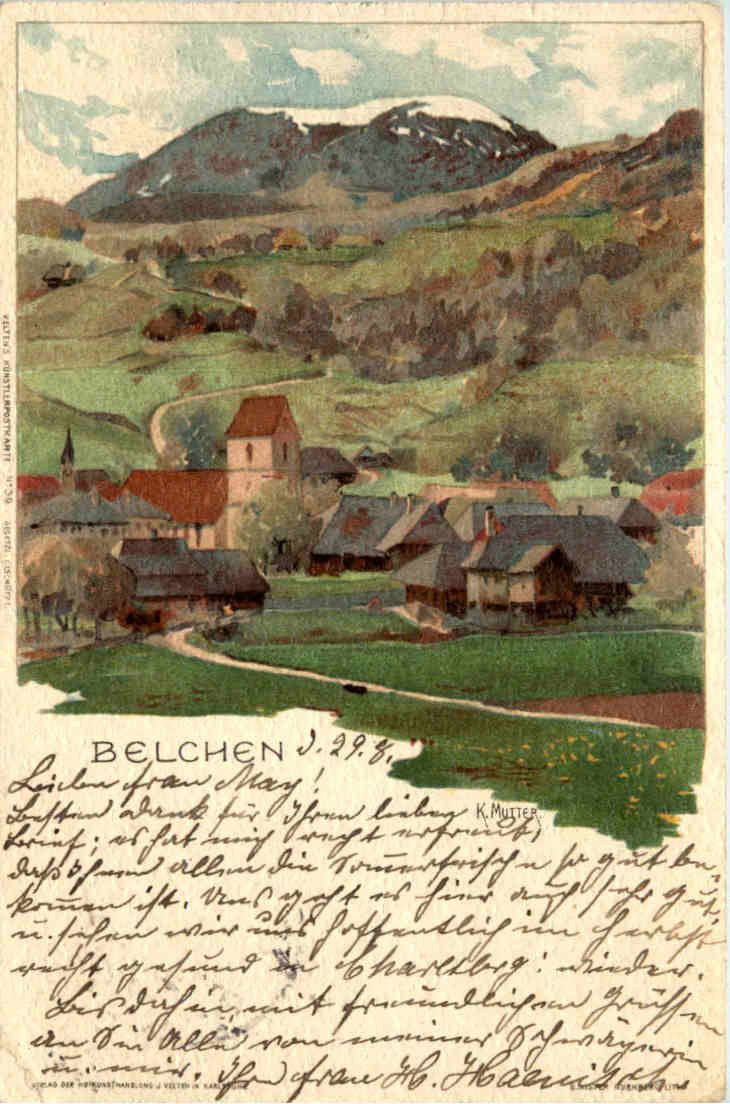 BELCHEN d. 29. 8.
Liebe Frau May!
Besten Dank für Ihren lieben
K. MUTTER.
Brief; es hat mich recht erfreut,
daß Ihnen allen die Som̅erfrische so gut be-
kom̅en ist. Uns geht es hier auch sehr gut,
u. sehen wir uns hoffentlich im Herbst
recht gesund in Charltbg: wieder.
Bis dahin, mit freundlichen Grüssen
an Sie Alle von meiner Schwägerin
u. mir. Ihre Frau H.
VERLAG DER HOFKUNSTHANDLUNG J. VELTEN IN KARLSRUHE
VELTEN'S KÜNSTLERPOSTKARTE No 39